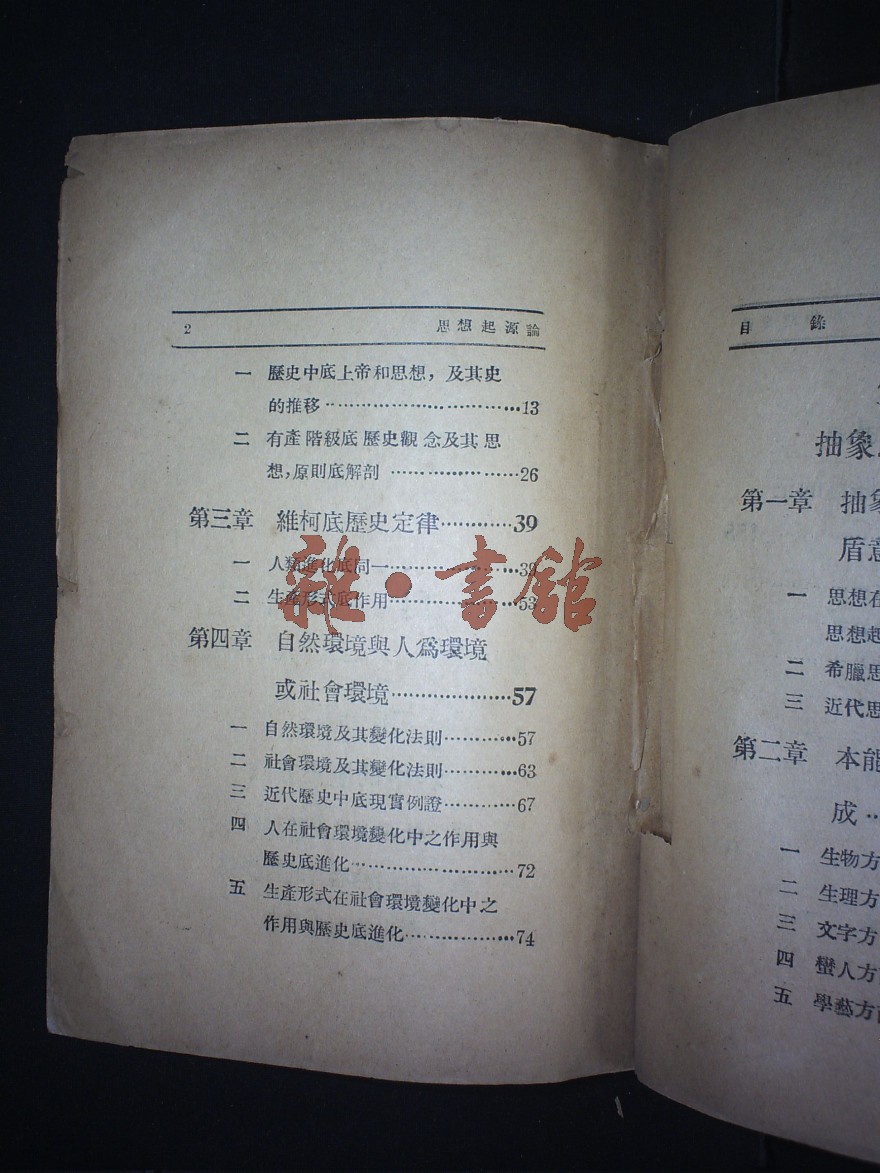 2 思想起源論
一 歷史中底上帝和思想，及其史
的推移……………………………13
二 有產階級底歷史觀念及其思
想，原則底解剖……………………26
第三章 維柯底歷史定律…………39
一 人類進化底同一……………………39
二 生產形式底作用……………………53
第四章 自然環境與人爲環境
或社會環境…………………57
一 自然環境及其變化法則…………57
二 社會環境及其變化法則…………63
三 近代歷史中底現實例證…………67
四 人在社會環境變化中之作用與
歷史底進化…………………………72
五 生產形式在社會環境變化中之
作用與歷史底進化…………………74
雜·書館
目錄
抽象
第一章 抽象
盾意
一 思想在
思想起
二 希臘思
三 近代思
第二章 本能
成…
一 生物方
二 生理方
三 文字方
四 蠻人方
五 學藝方